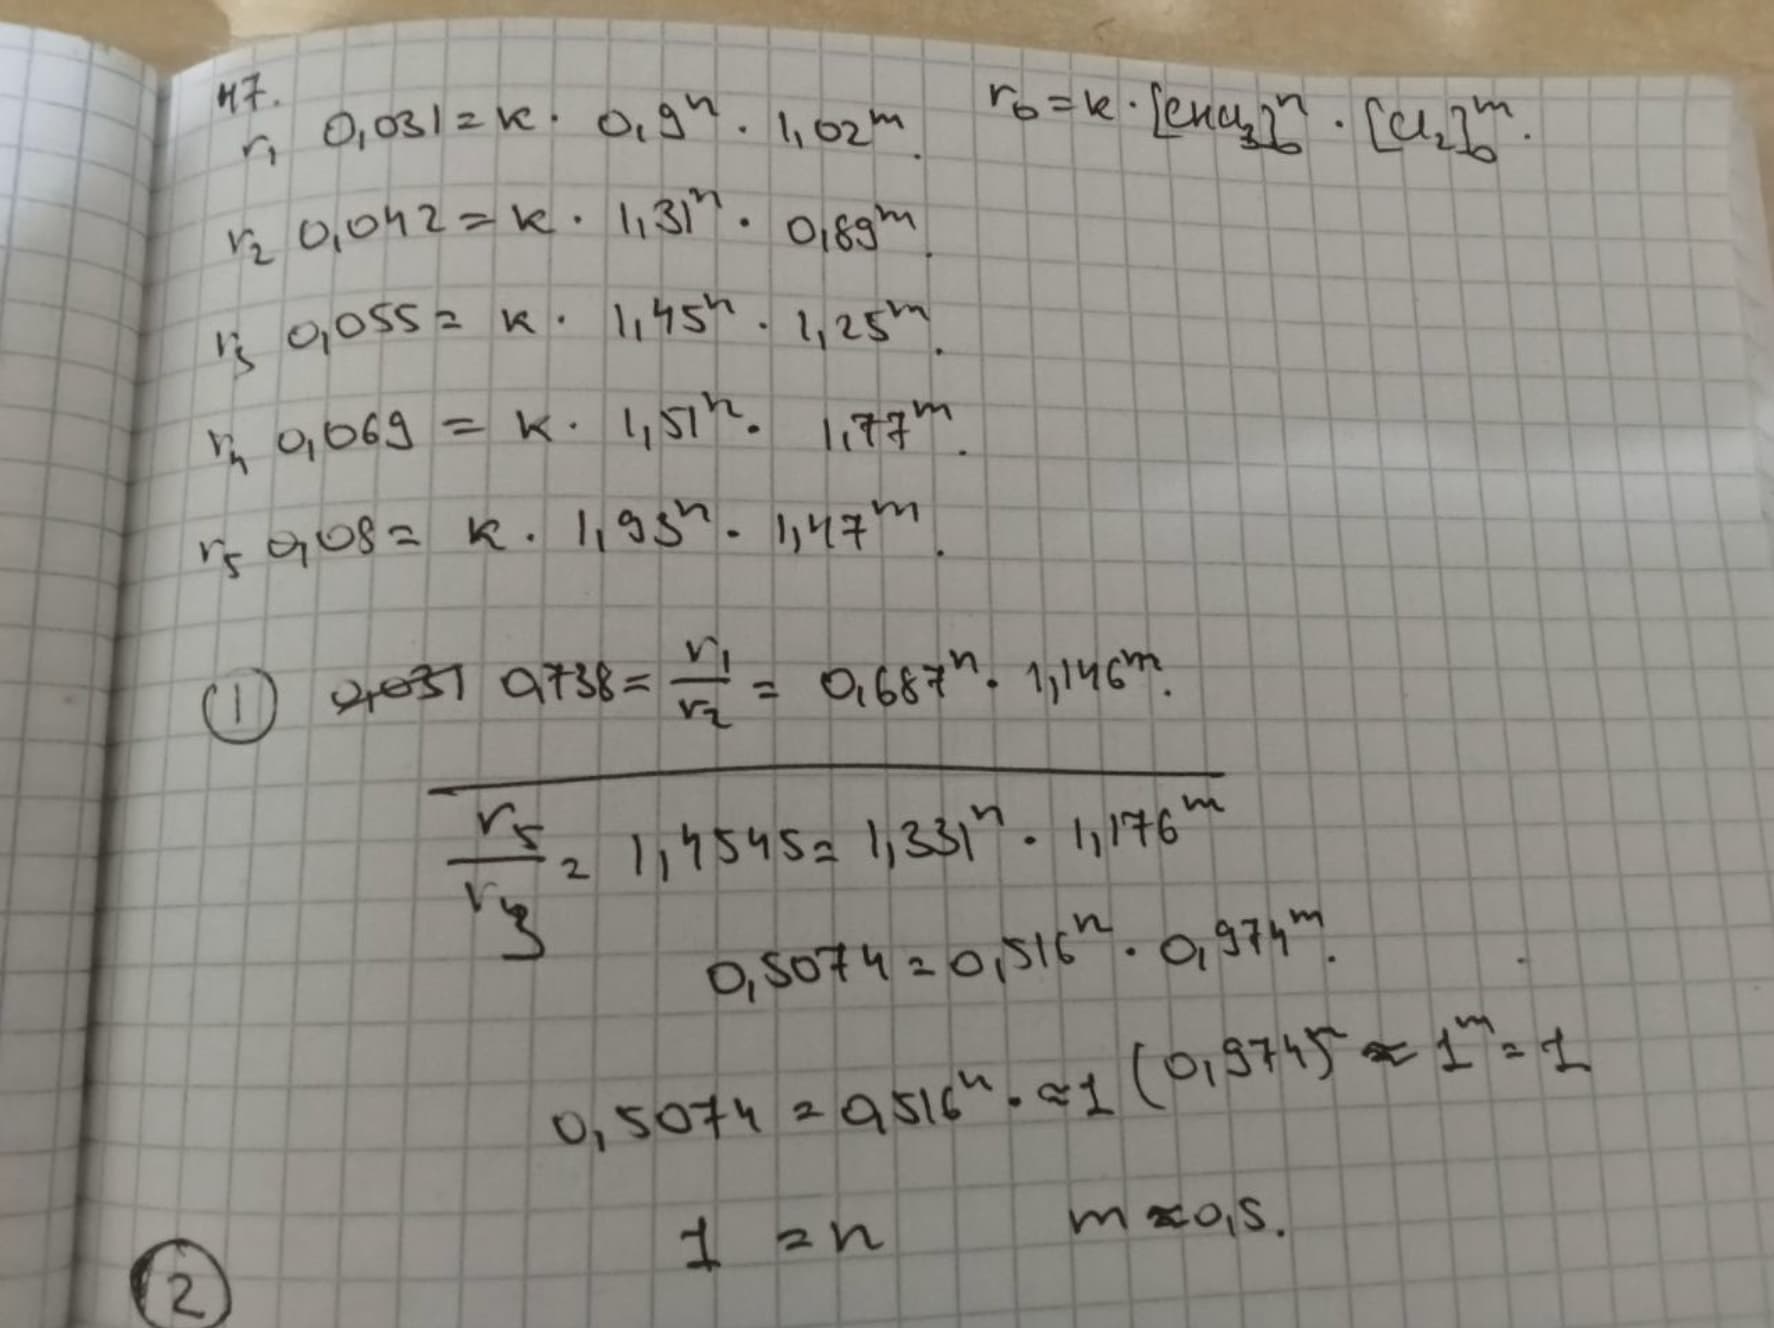 47.
r₁ 0,031 = k · 0,9ⁿ · 1,02ᵐ. r₀ = k · [CHCl₃]₀ⁿ · [Cl₂]₀ᵐ.
r₂ 0,042 = k · 1,31ⁿ · 0,89ᵐ.
r₃ 0,055 = k · 1,45ⁿ · 1,25ᵐ.
r₄ 0,069 = k · 1,51ⁿ · 1,77ᵐ.
r₅ 0,08 = k · 1,93ⁿ · 1,47ᵐ.
① 0,031 0,738 = r₁/r₂ = 0,687ⁿ · 1,146ᵐ.
r₅/r₃ = 1,4545 = 1,331ⁿ · 1,176ᵐ
0,5074 = 0,516ⁿ · 0,974ᵐ.
0,5074 = 0,516ⁿ · ≈1 (0,974)ᵐ ≈ 1ᵐ = 1
1 = n m ≈ 0,5.
②